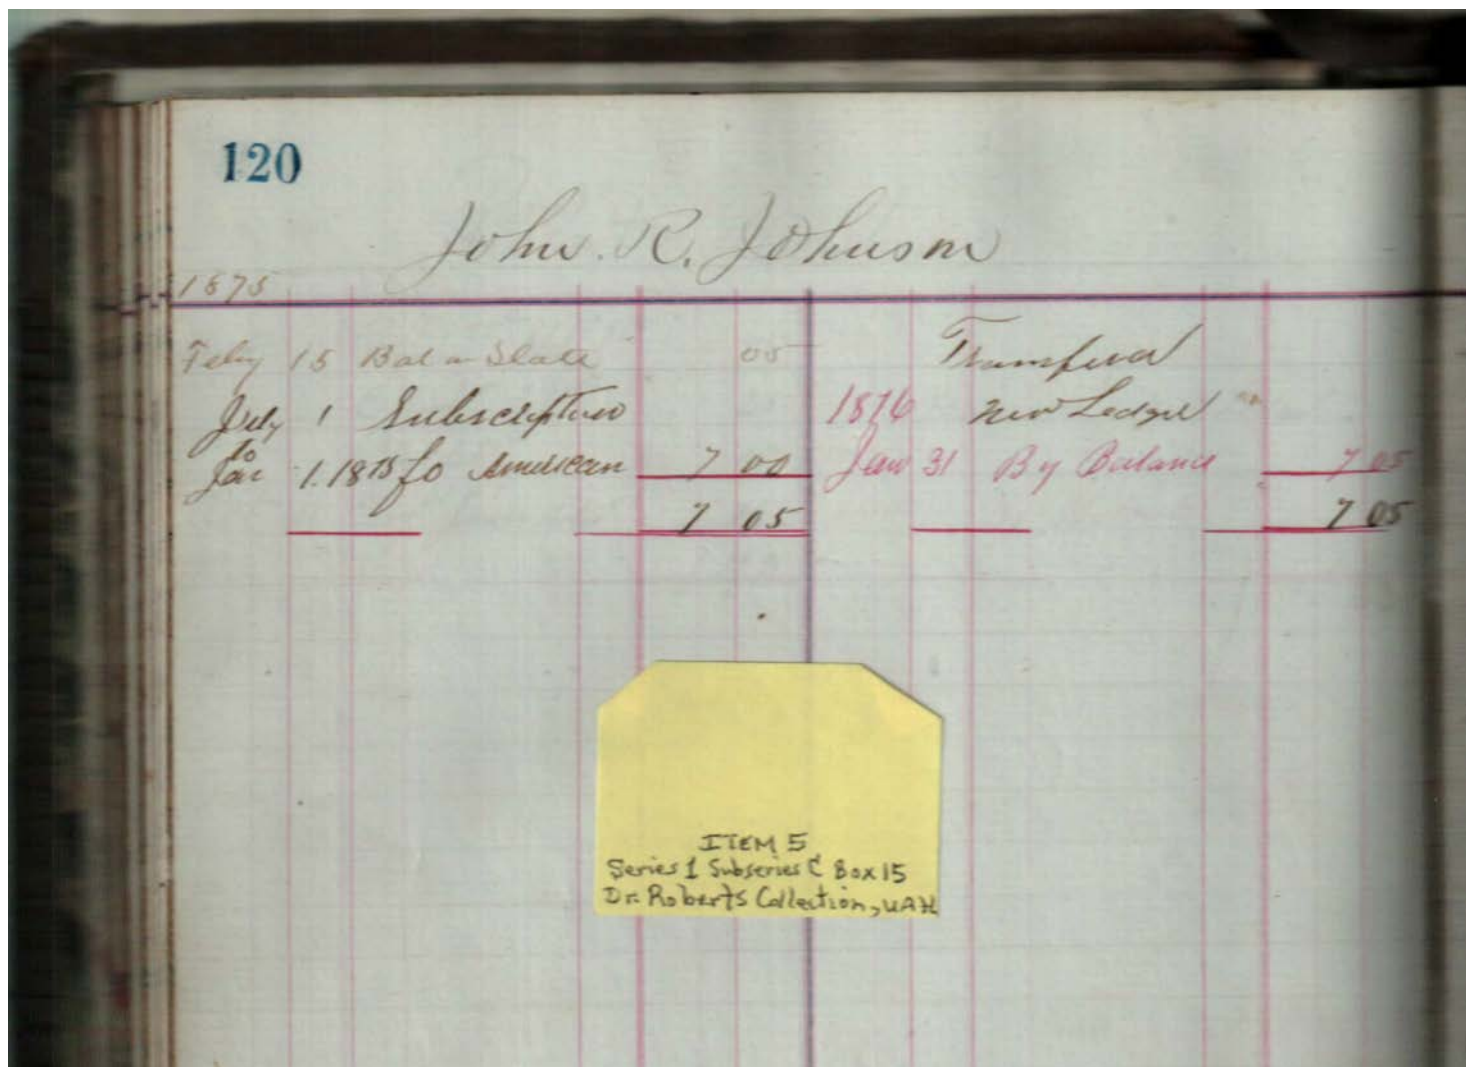 120
John. R. Johnson
1875
Feby 15 Bal on Slate 05
July 1 Subscription
to
Jan 1. 1875 fo American 7 00
7 05
Transferred
1876 New Ledger
Jan 31 By Balance 7 05
7 05
ITEM 5
Series 1 Subseries C Box 15
Dr. Roberts Collection, UAH